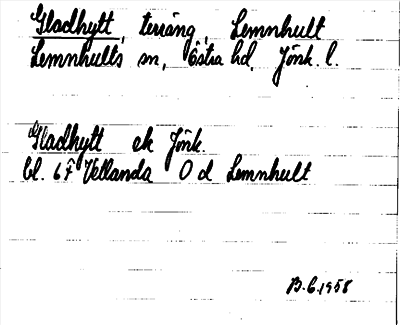 Gladhytt, terräng, Lemnhult
Lemnhults sn, Östra hd, Jönk. l.
Gladhytt ek Jönk.
bl. 6 f Vetlanda O d Lemnhult
B. C. 1958